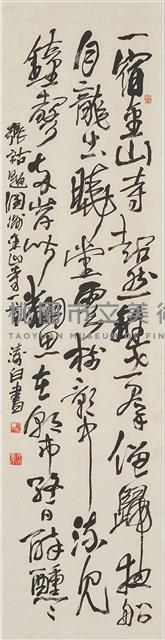 一宿金山寺超然離世群僧歸夜船
月龍出曉堂雲樹影中流見
鐘聲兩岸聞翻思在朝市終日醉醺〻
張祜題潤州金山寺 書
桃園市立美術